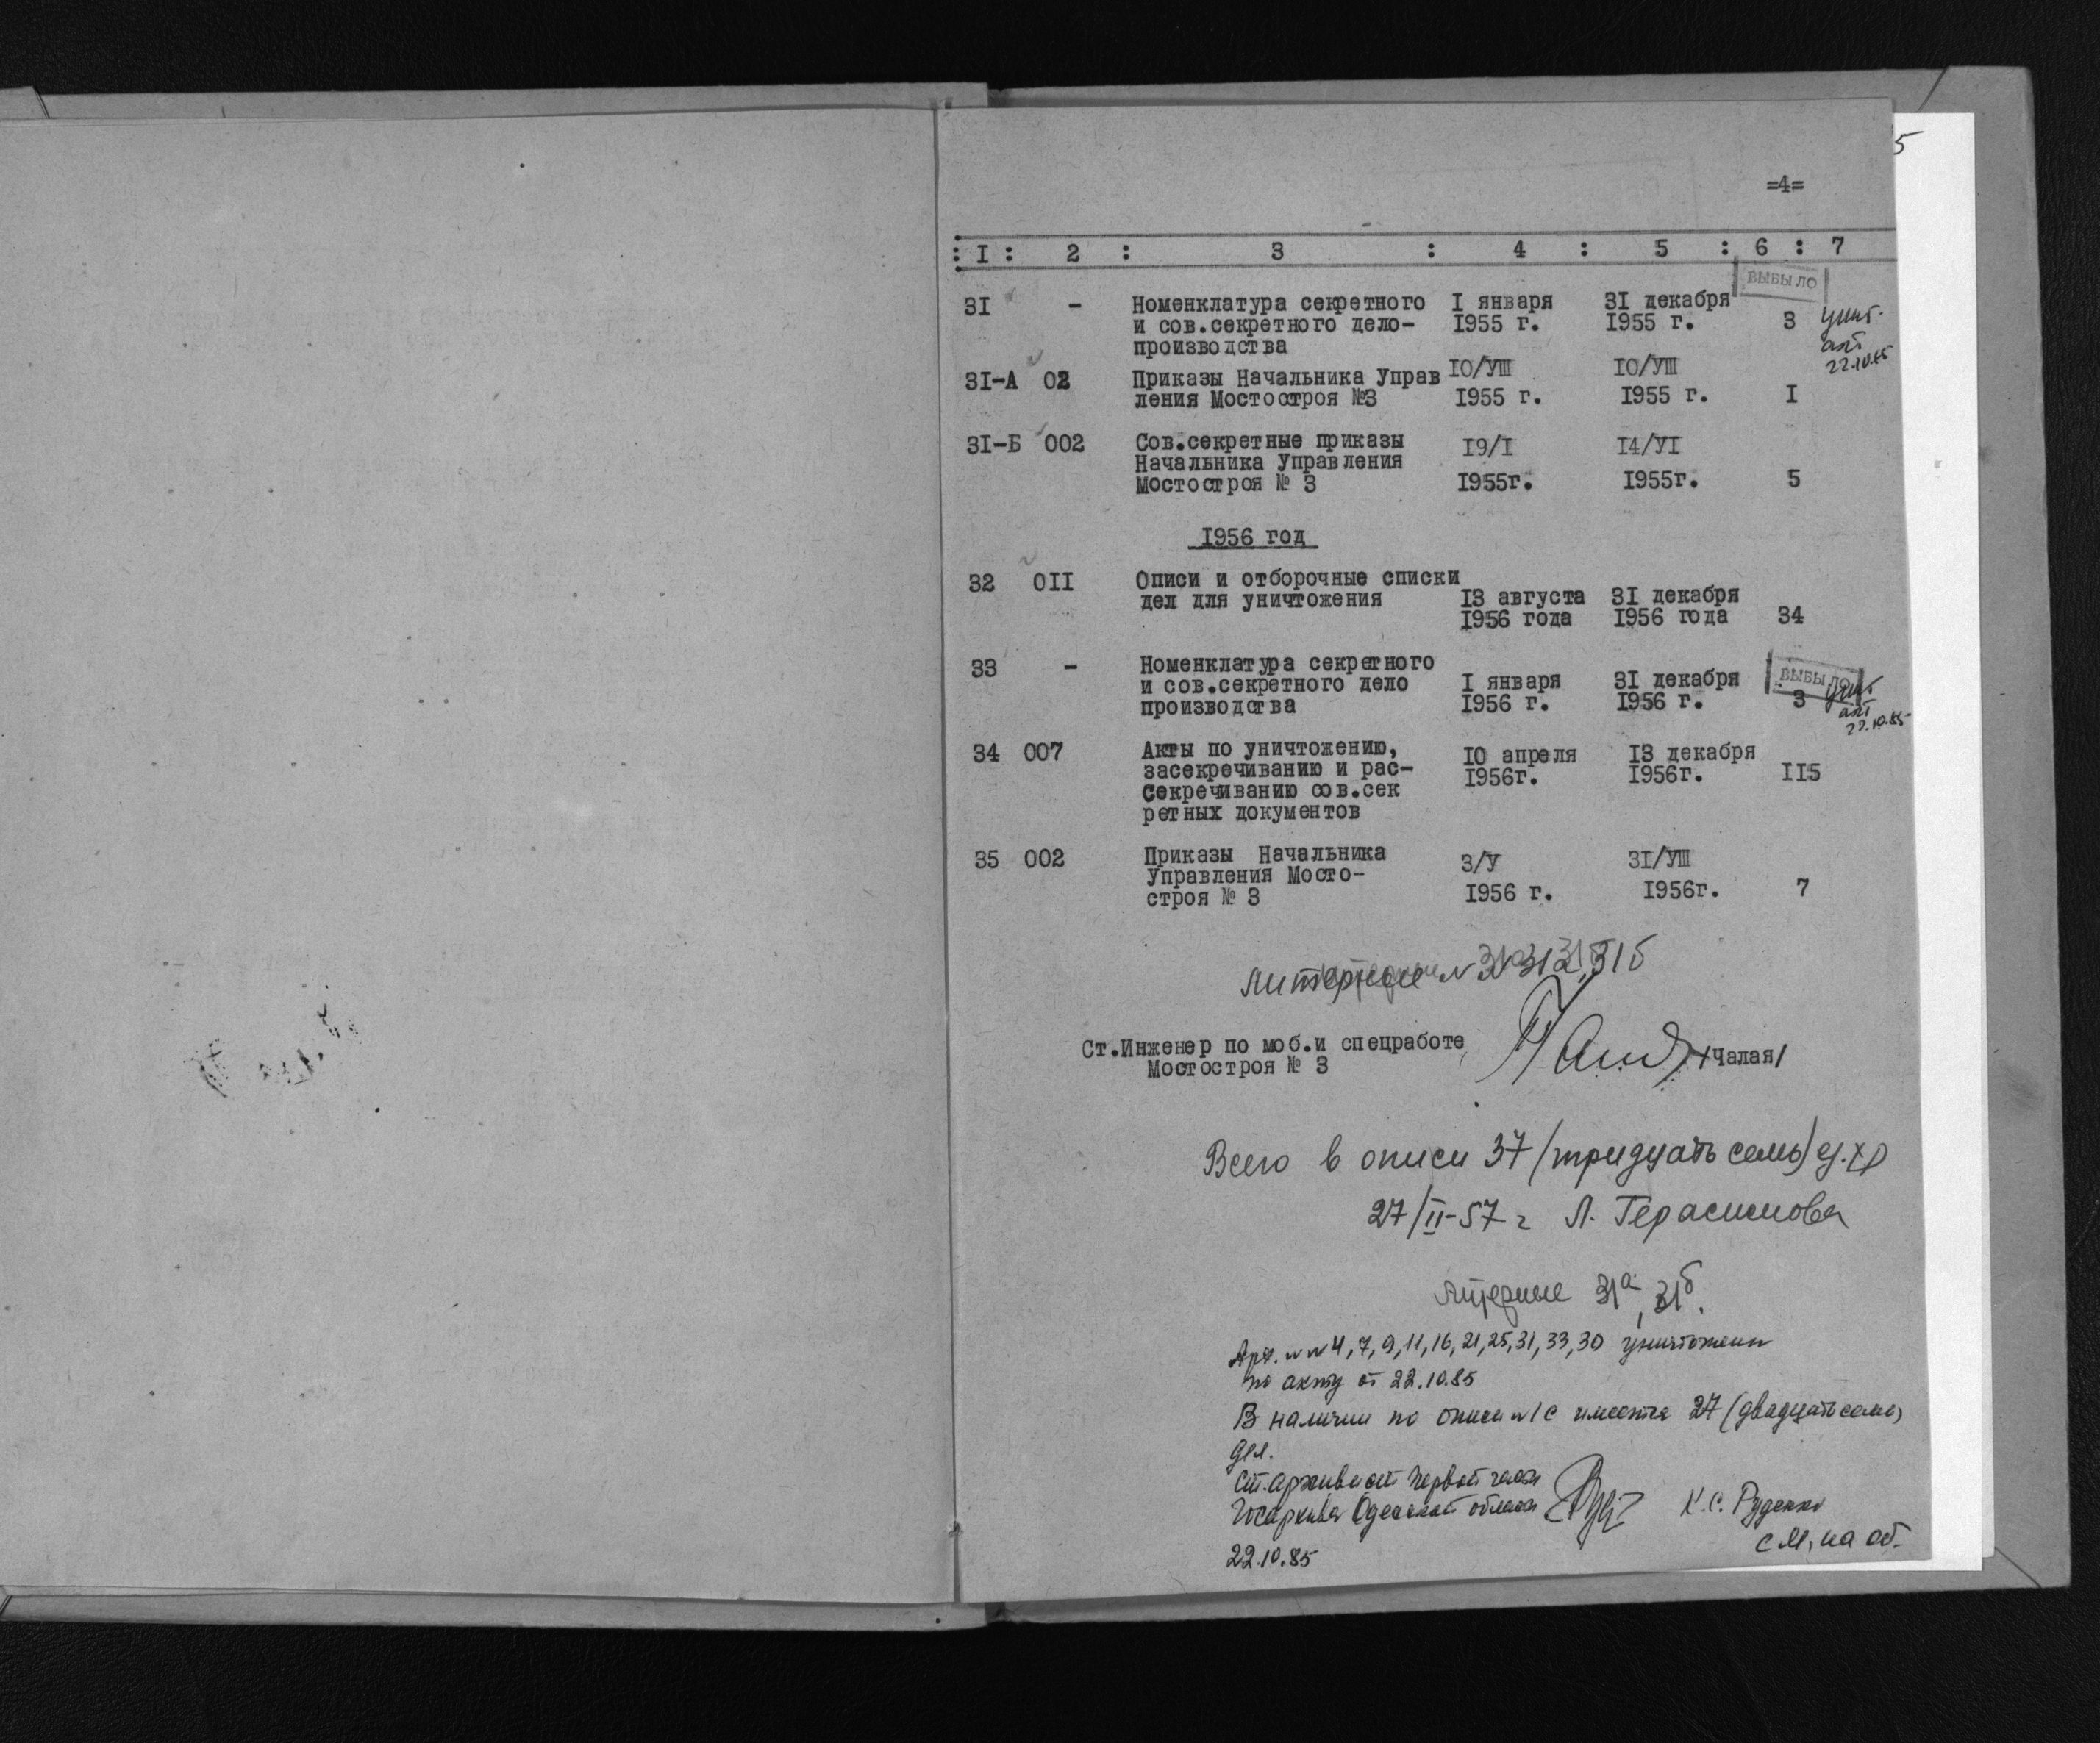 5
=4=
: I : 2 : 3 : 4 : 5 : 6 : 7
ВЫБЫЛО
31 - Номенклатура секретного I января 31 декабря
и сов.секретного дело- 1955 г. 1955 г. 3 уничт.
производства акт
22.10.85
31-А 02 Приказы Начальника Управ 10/УШ 10/УШ
ления Мостостроя №3 1955 г. 1955 г. I
31-Б 002 Сов.секретные приказы 19/I 14/УI
Начальника Управления
Мостостроя № 3 1955г. 1955г. 5
1956 год
32 011 Описи и отборочные списки
дел для уничтожения 13 августа 31 декабря
1956 года 1956 года 34
33 - Номенклатура секретного ВЫБЫЛО
и сов.секретного дело I января 31 декабря
производства 1956 г. 1956 г. 3
акт
22.10.85
34 007 Акты по уничтожению, 10 апреля 13 декабря
засекречиванию и рас- 1956г. 1956г. 115
Секречиванию сов.сек
ретных документов
35 002 Приказы Начальника 3/У 31/УШ
Управления Мосто-
строя № 3 1956 г. 1956г. 7
Литерные 31б
Ст.Инженер по моб.и спецработе
Мостостроя № 3 /Чалая/
Всего в описи 37 /тридцать семь/ ед.хр
27/II-57 г Л. Герасимова
Литерные 31а, 31б.
Арх. №№ 4, 7, 9, 11, 16, 21, 25, 31, 33, 30 уничтожены
по акту от 22.10.85
В наличии по описи №1с имеется 27 (двадцать семь)
дел.
Ст. архивист первой части
Госархива Одесской области К.С. Руденко
см. на об.
22.10.85